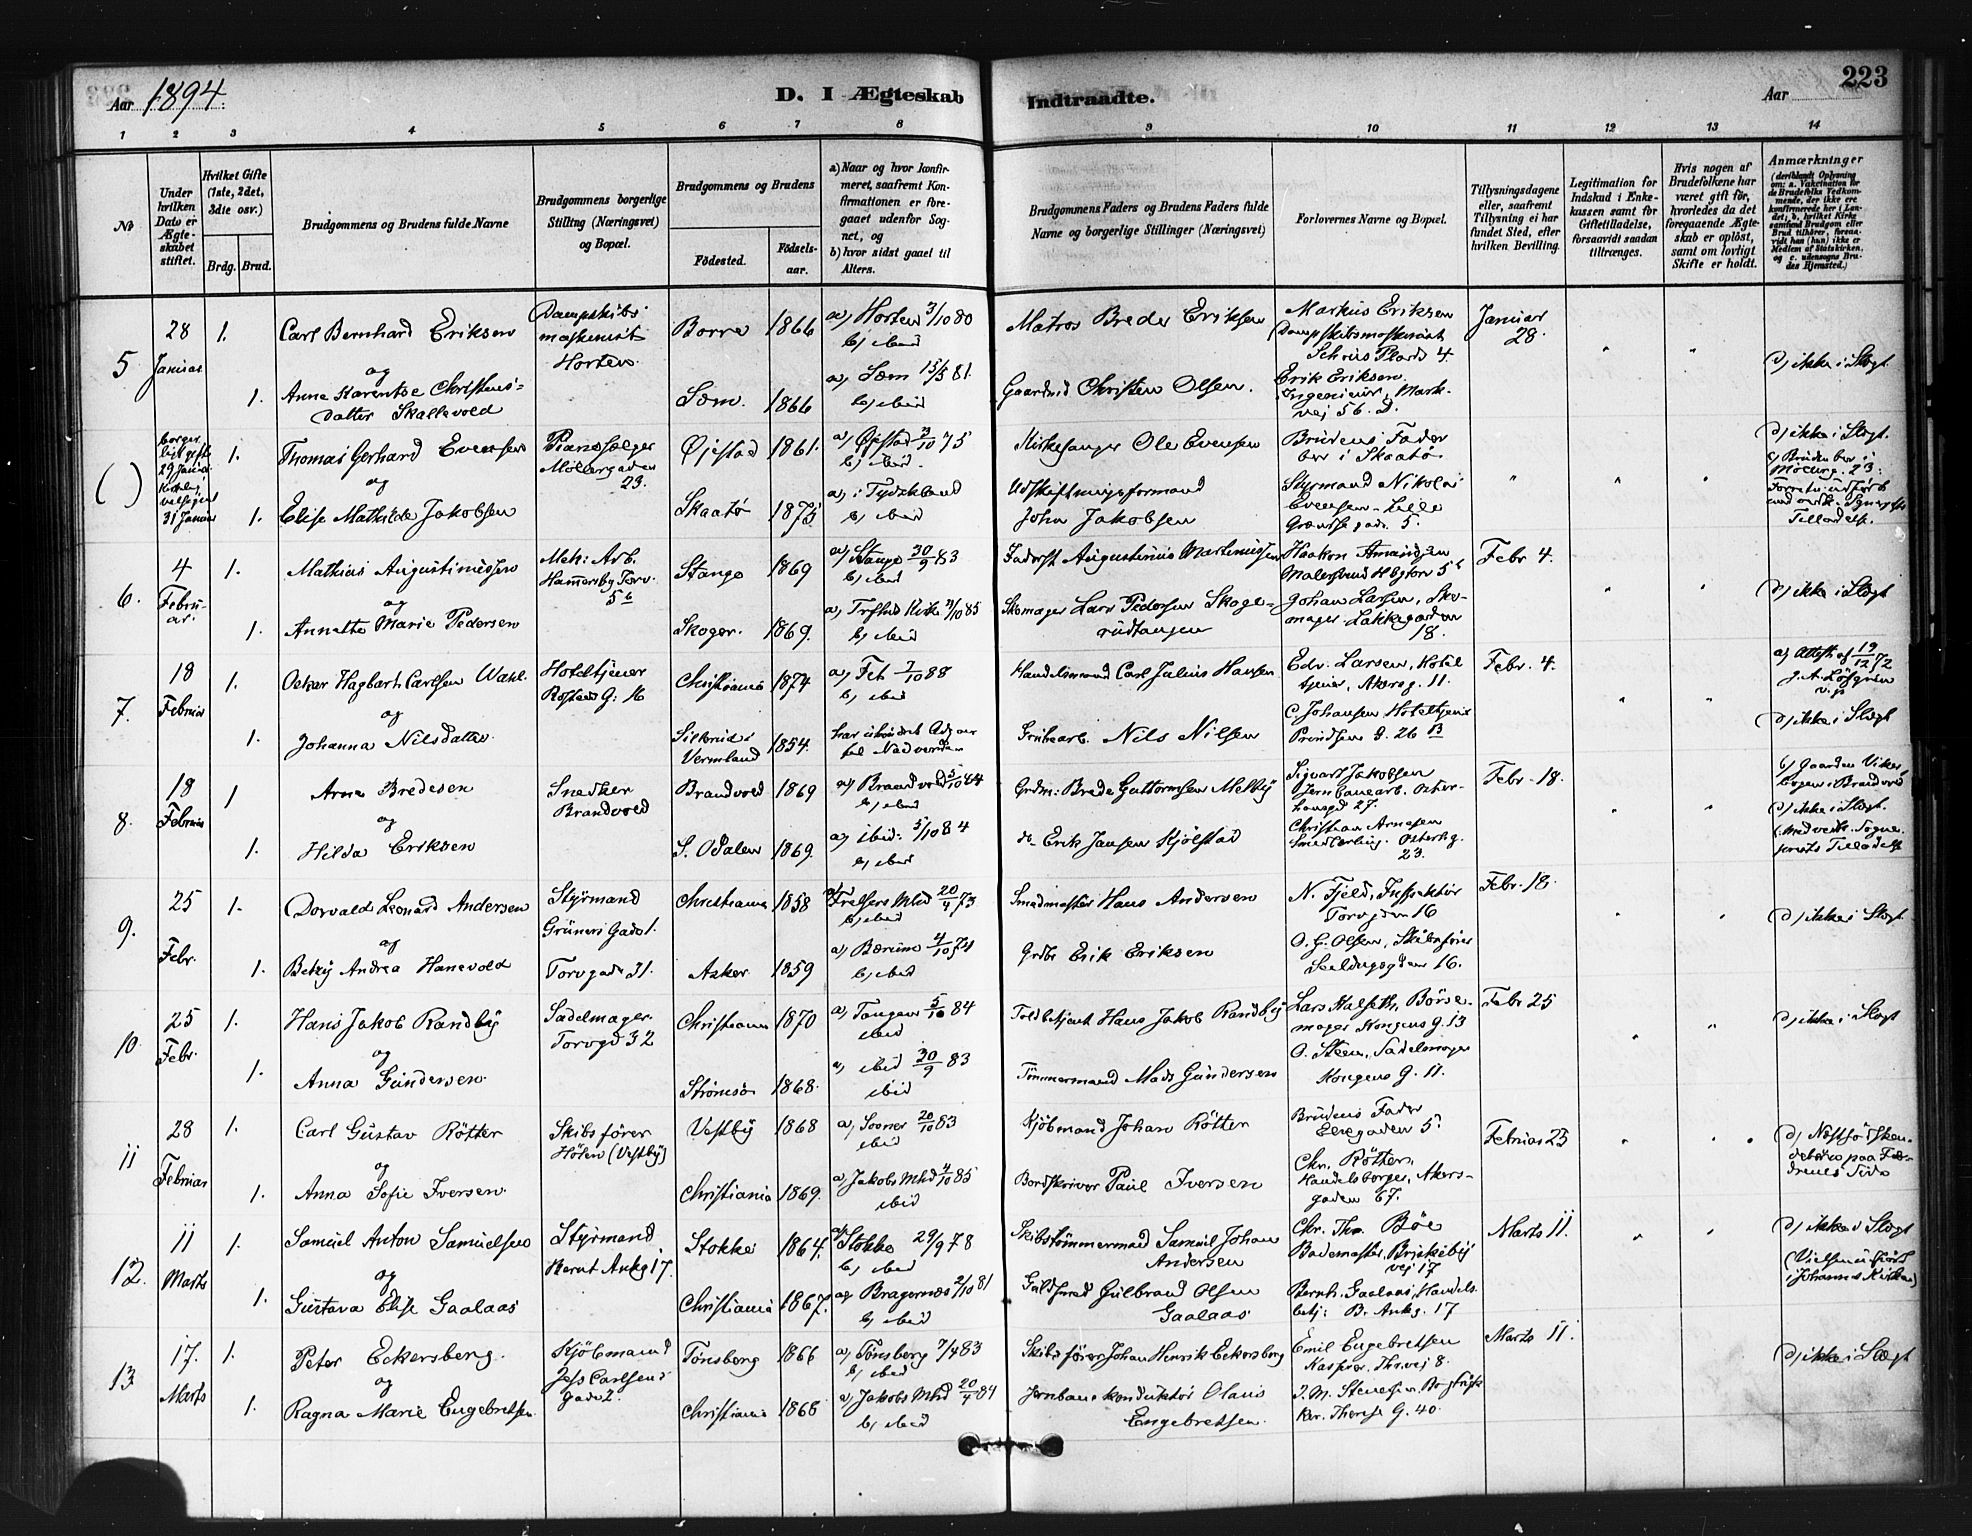 Aar 1894.
D. I Ægteskab Indtraadte.
Aar
223
1 2 3 4 5 6 7 8 9 10 11 12 13 14
No
Under hvilken Dato er Ægteskabet stiftet.
Hvilket Gifte (1ste, 2det, 3die osv.)
Brdg. Brud.
Brudgommens og Brudens fulde Navne
Brudgommens borgerlige Stilling (Næringsvei) og Bopæl.
Brudgommens og Brudens
Födested.
Födsels-aar.
a) Naar og hvor konfirmeret, saafremt Konfirmationen er foregaaet udenfor Sognet, og
b) hvor sidst gaaet til Alters.
Brudgommens Faders og Brudens Faders fulde Navne og borgerlige Stillinger (Næringsvei)
Forlovernes Navne og Bopæl.
Tillysningsdagene eller, saafremt Tillysning ei har fundet Sted, efter hvilken Bevilling.
Legitimation for Indskud i Enkekassen samt for Giftetilladelse, forsaavidt saadan tiltrænges.
Hvis nogen af Brudefolkene har været gift för, hvorledes da det foregaaende Ægteskab er oplöst, samt om lovligt Skifte er holdt.
Anmærkninger (deriblandt Oplysning om: a. Vakcination for de Brudefolks Vedkommende, der ikke ere konfirmerede her i Landet; b. hvilket Kirkesamfund Brudgom eller Brud tilhörer, forsaavidt han (hun) ikke er Medlem af Statskirken, og c. udensogns Brudes Hjemsted.)
5 28 Januar 1. Carl Bernhard Eriksen Dampskibsmaskinist Horten Borre 1866 a) Horten 3/10 80 b) ibid Matros Brede Eriksen Markus Eriksen Dampskibsmaskinist Schous Plads 4 Januar 28.
og
1. Anne Karentse Christensdatter Skallevold Sem. 1866 a) Sem 15/5 81. b) ibid Gaardmd Christen Olsen. Erik Eriksen Ingenieur, Markvej 56 d. d) ikke i Slægt
( ) borgerligt gifte 29 Januar 31 Januar 1. Thomas Gerhard Evensen Pianosælger Möllergaden 23. Öjestad 1861. a) Öjestad 3/10 75 b) ibid. Kirkesanger Ole Evensen Brudens Fader bor i Skaatö d) ikke i Slægt.
og
1. Elise Mathilde Jakobsen Skaatö 1875 a) i Tydskland b) ibid Udskiftningsformand John Jakobsen Styrmand Nikolai Evensen Lille Grændseg. 5. Möllerg. 23. Tilladelse.
6. 4 Februar. 1. Mathias Augustinussen Mek: Arb. Hammersby Torv. 5 b Stange 1869 a) Stange 30/9 83 b) ibid Augustinus Martinussen Haakon Amundsen Malersvend Febr 4.
og
1. Annette Marie Pedersen Skoger. 1869. 11/10 85 b) ibid Skomager Lars Pedersen Skogerudtangen Johan Larsen, Skomager. Lakkegaden 18. d) ikke i Slægt
7. 18 Februar 1. Oskar Hagbarth Carlsen Wahl Hoteltjener Rosteds G. 16 Christiania 1874 a) Fet 7/10 88 b) ibid Handelsmand Carl Julius Hansen Edv. Larsen, Hoteltjener, Akersg. 11. Febr. 4. a) Attest af 19/12 72
og
1. Johanna Nilsdatter Vermland 1854. har uhindret Adgang til Nadverden Grubearb. Nils Nilsen C. Johansen Hoteltjener Prindsens G. 26 B d) ikke i Slægt
8. 18 Februar 1 Arne Bredesen Snedker Brandvold Brandvold 1869 a) Brandvold 5/10 84 b) ibid Grdm: Brede Guttormsen Melby Sigvart Jakobsen Jernbanearb. Osterhausgd 27. Febr. 18. c) Gaarden i Brandvold
og
1. Hilda Eriksen S. Odalen 1869. a) ibid: 5/10 84 b) ibid do Erik Jansen Kjölstad Christian Arnesen Smedlærling. Osterhg. 23. d) ikke i Slægt. Tilladelse
9. 25 Febr. 1. Dorvald Leonard Andersen Styrmand Grüners Gade 1. Christiania 1858 a) Frelsers Mhd 20/4 73 b) ibid Smedmester Hans Andersen N. Fjeld, Inspektör Torvgaden 16 Febr. 18.
og
1. Betzy Andrea Hanevold Torvgade 31. Asker 1859 a) Bærum 4/10 74 b) ibid Grdbr Erik Eriksen O. G. Olsen, Skibsförer 16. d) ikke i Slægt
10 25 Febr. 1. Hans Jakob Randby Sadelmager Torvgd 32 Christiania 1870 a) Tangen 5/10 84 ibid Toldbetjent Hans Jakob Randby Lars Halseth, Börsemager Kongens G. 13 Febr 25
og
1. Anna Gundersen. Strömsö 1868. a) ibid 30/9 83 ibid Tömmermand Mads Gundersen O. Steen, Sadelmager Kongens G. 11. d) ikke i Slægt
11 28 Februar 1. Carl Gustav Rötter Skibsförer Hölen (Vestby) Vestby 1868 a) Sooner 20/10 83 ibid Kjöbmand Johan Rötter Brudens Fader 5. Februar 23
og
1. Anna Sofie Iversen. Christiania 1869. a) Jakobs Mhd 4/10 85 ibid Bordskriver Paul Iversen Chr. Rötter, Handelsborger, Akersgaden 67. d) Nöstsöskendebörn paa Fædrenes Side
12. 11 Marts 1. Samuel Anton Samuelsen Styrmand Bernt Ankg 17. Stokke 1864. a) Stokke 29/9 78 b) ibid Skibstömmermand Samuel Johan Andersen Chr. Tho. Böe Bademester, Briskebyvej 17 Marts 11. d) ikke i Slægt
og
1. Gustava Elise Gaalaas Christiania 1867. a) Bragernæs 2/10 81 b) ibid Guldsmed Gulbrand Olsen Gaalaas Bernh. Gaalaas, Handelsbetj: B. Ankg. 17 (Vielsen udfört i Johannes Kirken)
13 17. Marts 1. Peter Eckersberg. Kjöbmand Jess Carlsens gade 2. Tönsberg 1866 a) Tönsberg 7/4 83 b) ibid Skibsförer Johan Henrik Eckersberg Emil Engebretsen 8. Marts 11.
og
1. Ragna Marie Engebretsen Christiania 1868 a) Jakobs Mhd 20/4 84 b) ibid Jernbanekonduktör Olaus Engebretsen. Therese G. 40. d) ikke i Slægt